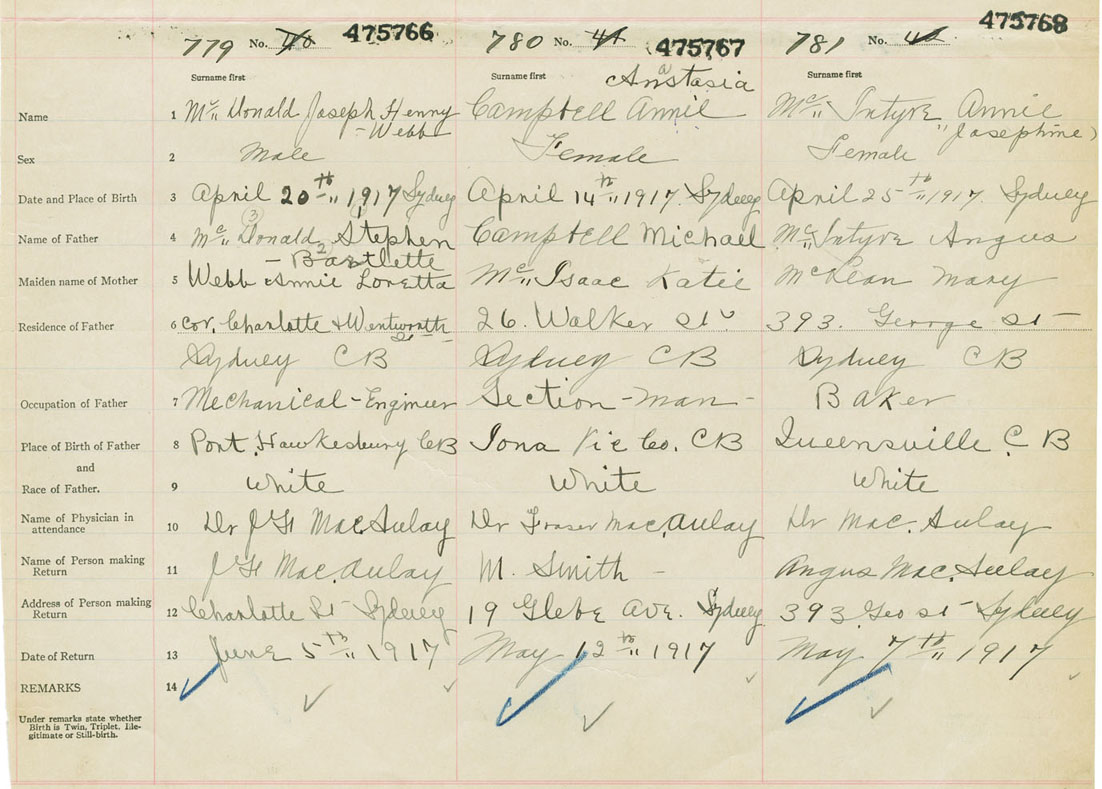 779 No. 40 475766 780 No. 41 475767 781 No. 42 475768
Surname first Surname first Surname first
Anastasia
Name 1 Mc Donald Joseph Henry Campbell Annie Mc Intyre Annie
- Webb Josephine)
Sex 2 Male Female Female
Date and Place of Birth 3 April 20th 1917 Sydney April 14th 1917. Sydney April 25th 1917. Sydney
(3) 1
Name of Father 4 Mc Donald Stephen Campbell Michael Mc Intyre Angus
2
- Bartlette
Maiden name of Mother 5 Webb Annie Loretta Mc Isaac Katie McKean Mary
Residence of Father 6 Cor. Charlotte & Wentworth St 26. Walker St 393. George St
Sydney CB Sydney CB Sydney CB
Occupation of Father 7 Mechanical-Engineer Section-man- Baker
Place of Birth of Father 8 Port Hawkesbury CB Iona Vic Co. CB Queensville C B
and
Race of Father. 9 White White White
Name of Physician in
attendance 10 Dr Mac.Aulay Dr Fraser Mac.Aulay Dr Mac. Aulay
Name of Person making
Return 11 Mac.Aulay M. Smith - Angus Mac.Aulay
Address of Person making
Return 12 Charlotte St Sydney 19 Glebe Ave. Sydney 393. Geo St Sydney
Date of Return 13 June 5th 1917 May 12th 1917 May 7th 1917
REMARKS 14
Under remarks state whether
Birth is Twin, Triplet, Ille-
gitimate or Still-birth.